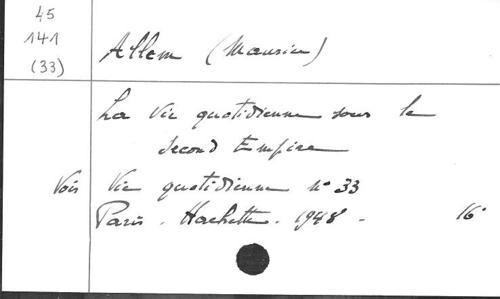 45
141
(33)
Allem (Maurice)
La Vie quotidienne sous le
Second Empire
Voir Vie quotidienne n° 33
Paris. Hachette. 1948. 16°